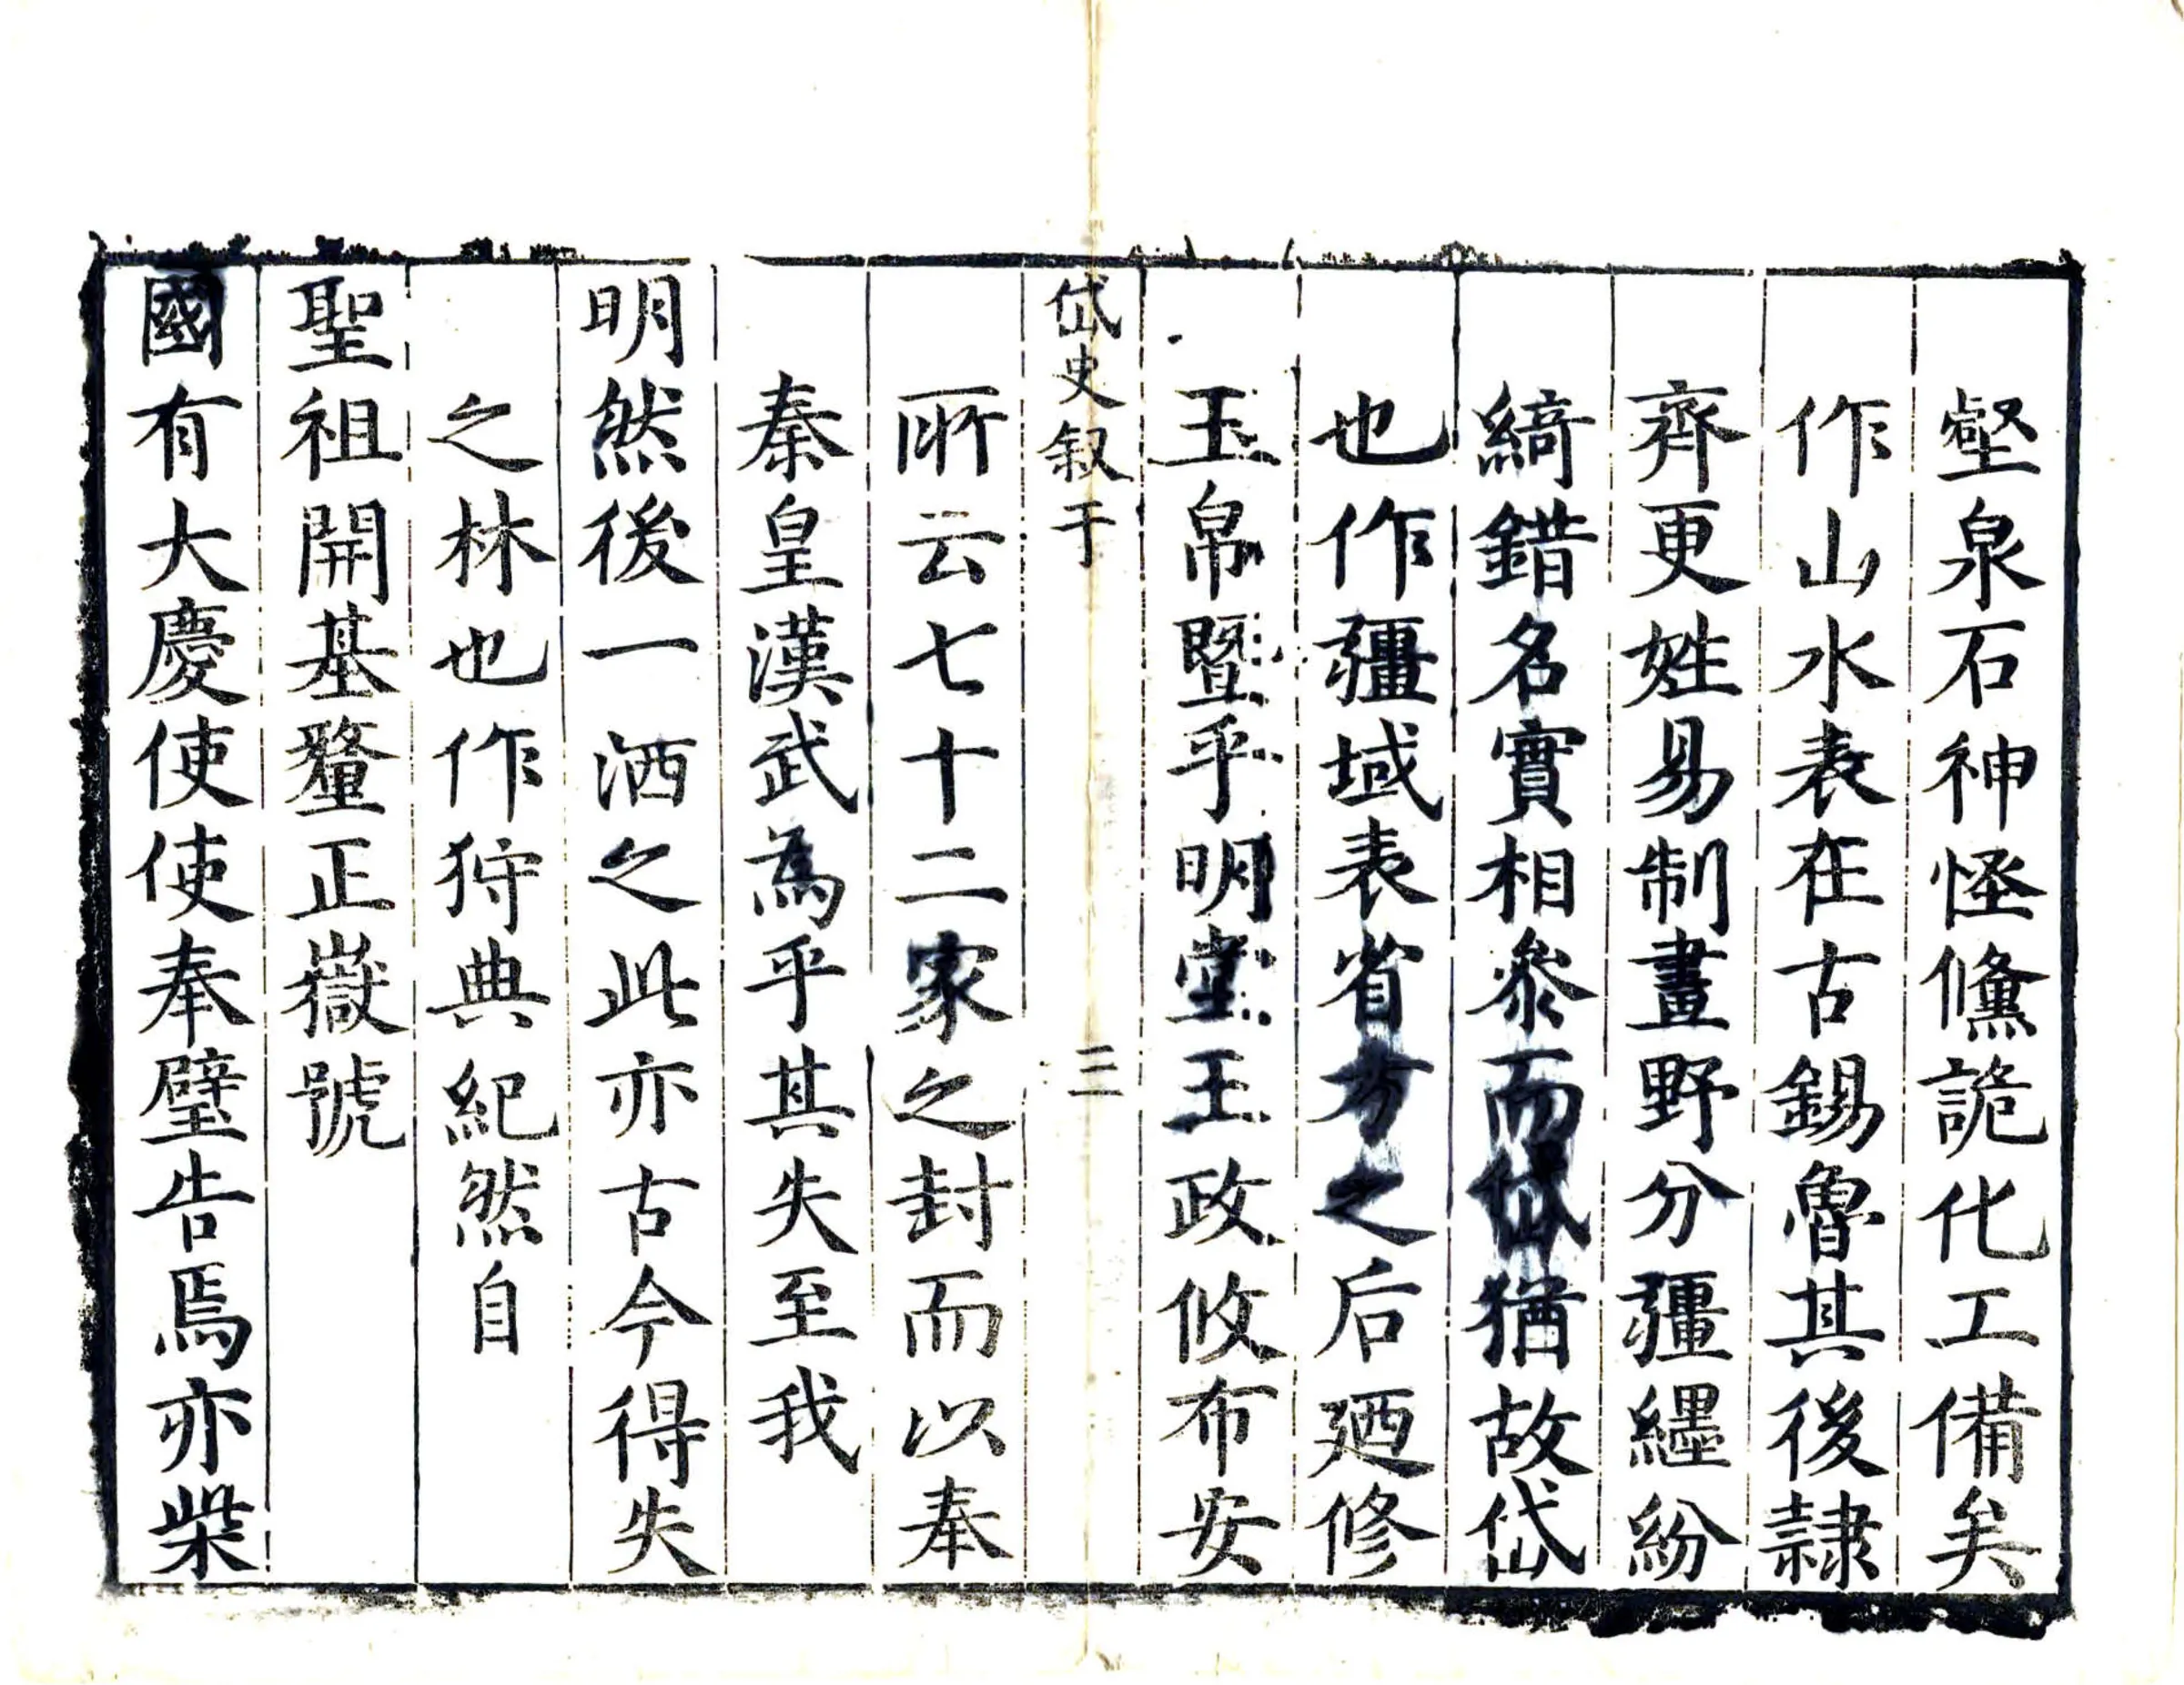 壑泉石神怪儵詭化工備矣
作山水表在古錫魯其後隷
齊更姓易制畫野分疆纆紛
綺錯名實相叅而岱猶故岱
也作疆域表省方之后廼修
玉帛暨乎明堂王政攸布安
岱史叙于
三
所云七十二家之封而以奉
秦皇漢武為乎其失至我
明然後一洒之此亦古今得失
之林也作狩典紀然自
聖祖開基釐正嶽號
國有大慶使使奉璧告焉亦柴